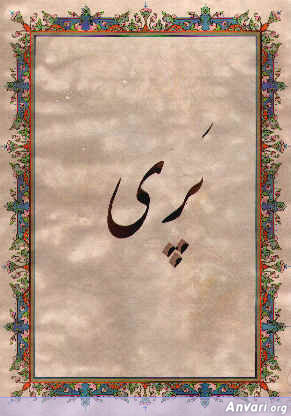 پَری
Anvari.org